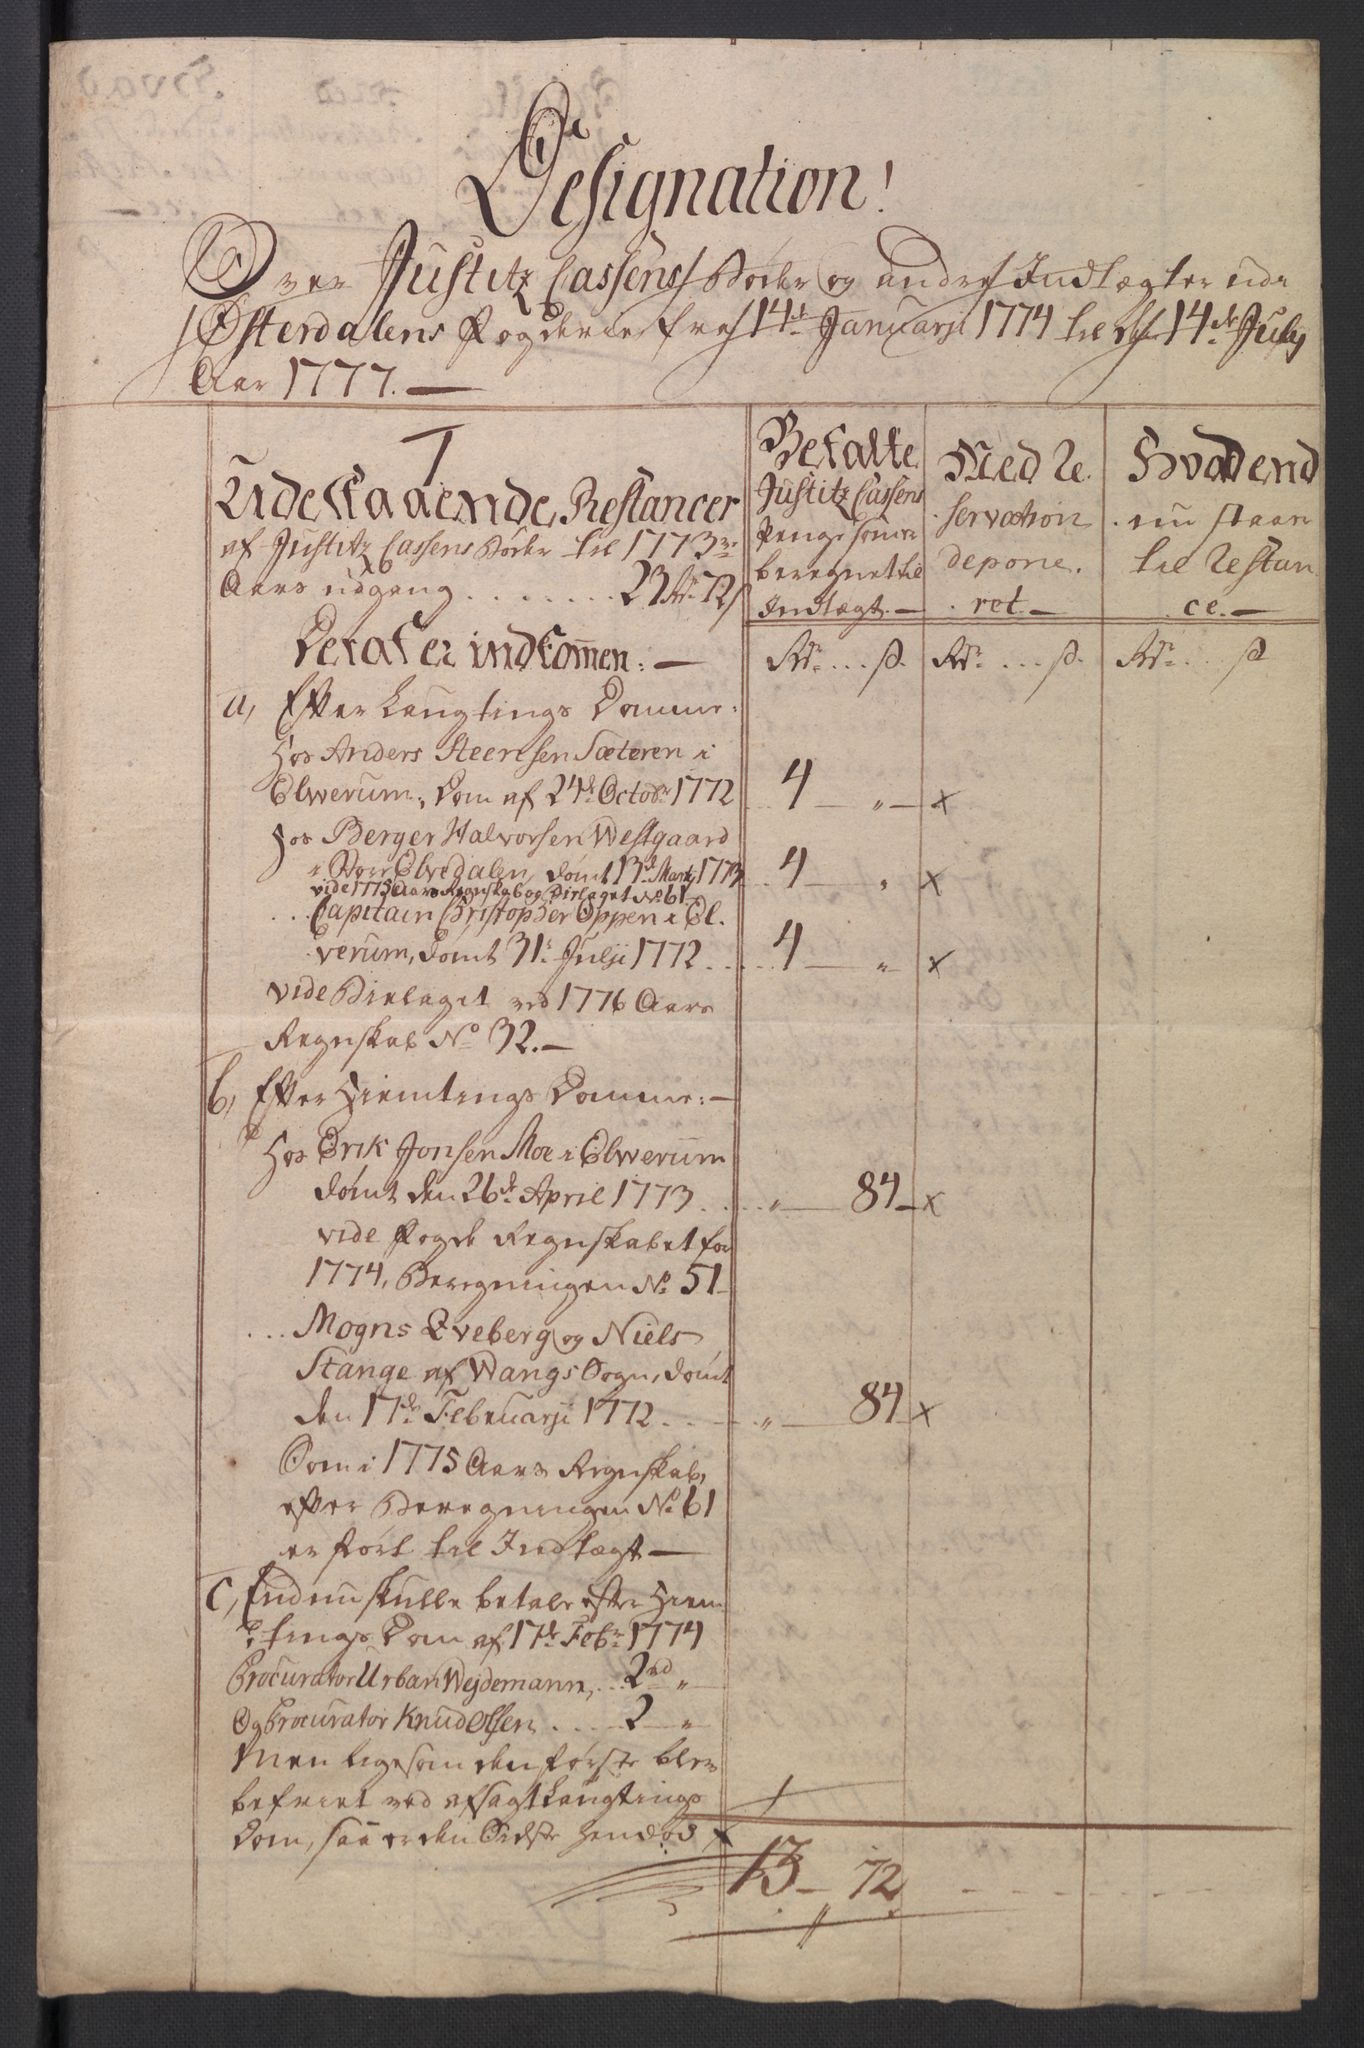 Designation!
Over Justitz Cassens Bøder og andre Indtægter udi
Østerdalens Fogderie fra 14de Januarji 1774 til den 14de July
Aar 1777. —
I
Udestaaende Restancer
af Justitz Cassens Bøder til 1773de
Aars udgang . . . . . . . . 23 Rdr 72 ß
Betalte
Justitz Cassens
Penge som er
beregnet til
Indtægt. —
Med Re-
servation
depone-
ret. —
Hvad end
nu staar
til Restan
ce. —
Deraf er indkommen: —
Rdr . . . ß. Rdr . . . ß. Rdr . . . ß
a, Efter Laugtings Domme:
Hos Anders Steensen Sæteren i
Elwerum, Dom af 24de Octobr 1772 4 — " — x
Hos Berger Halvorsen Westgaard
i Stor Elvedalen, dømt 13de Marty 1773 . . 4 — " x
vide 1775 Aars Regnskab og Bielaget No 61
. . . Capitain Christopher Oppen i El-
verum, dømt 31te Julji 1772 . . . . 4 — " x
vide Bielaget ved 1776 Aars
Regnskab No 32. —
b, Efter Hiemtings Domme: —
Hos Erik Jonsen Moe i Elwerum
dømt den 26de April 1773 . . . . " — 84 — x
vide Fogde Regnskabet for
1774, Beregningen No 51 —
. . . Mogns Qveberg og Niels
Stange af Wangs Sogn, dømt
den 17de Februarji 1772 . . . — " — 84 x
Som i 1775 Aars Regnskab,
efter Beregningen No 61
er ført til Indtægt —
c, Endnu skulle betale efter Hiem
tings Dom af 17de Febr: 1774
Procurator Urban Wejdemann, . . 2rd "
Og Procurator Knud Olsen . . . . . 2 — "
Men ligesom den første blev
befriet ved afsagt Laugtings
Dom, saa er den Sidste hendød x
13 — 72